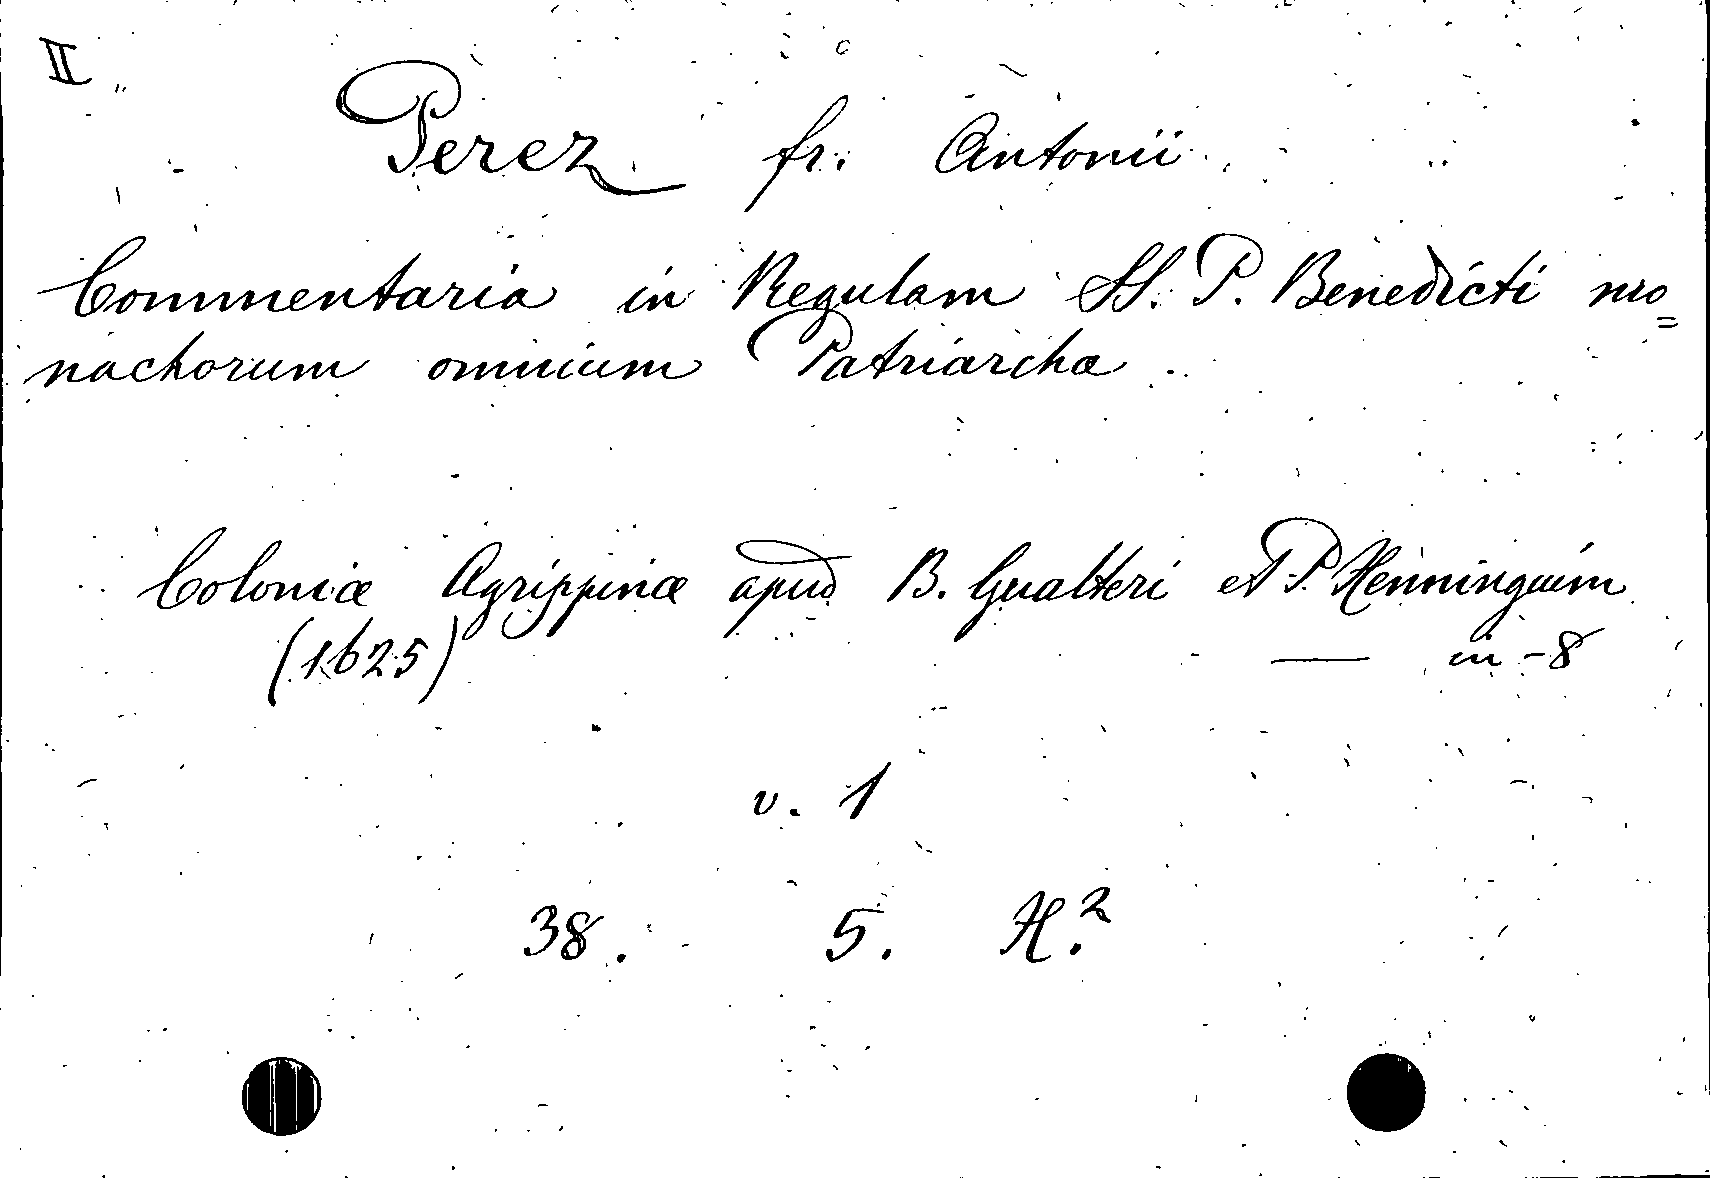 II
Perez fr. Antonii
Commentaria in Regulam SS. P. Benedicti mo=
nachorum omnium Patriarchæ
Coloniæ Agrippinæ apud B. Gualteri et P. Henninguim
(1625) — in-8
v. 1
38. 5. H.²